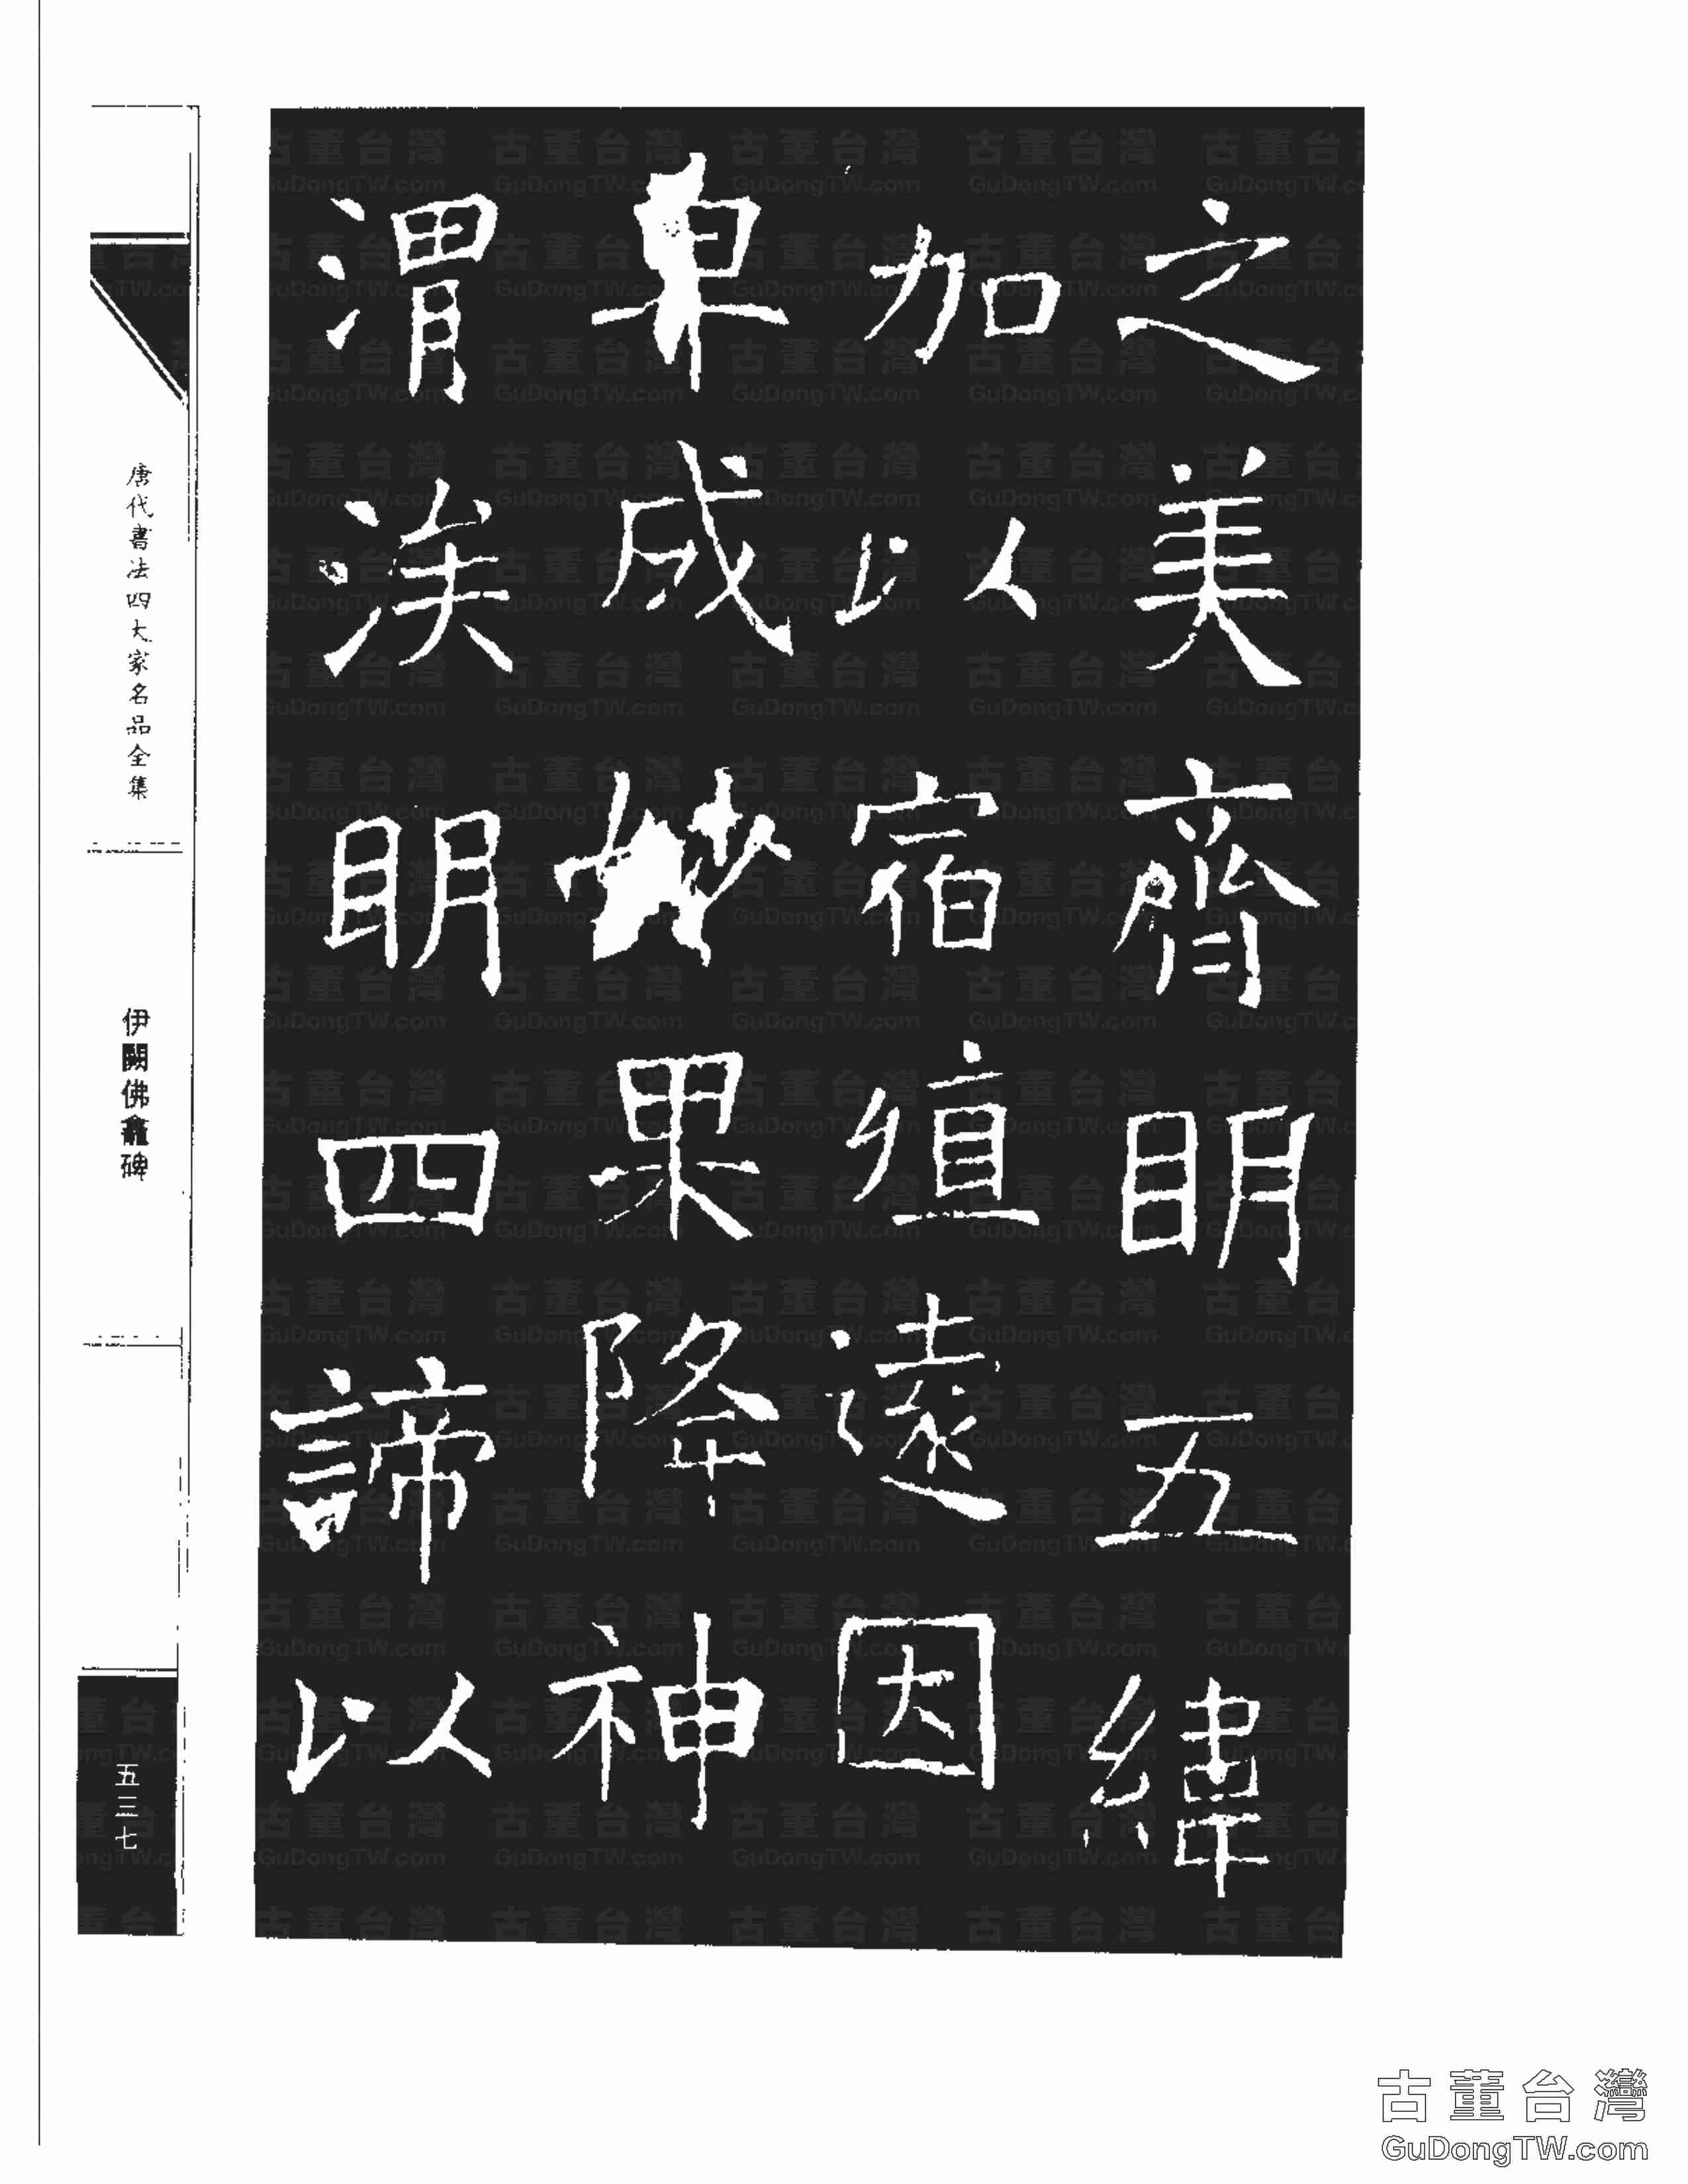 之美齊眀五緯
加以宿殖遠因
早成妙果降神
渭涘眀四諦以
唐代書法四大家名品全集
伊闕佛龕碑
五三七
古董台灣
GuDongTW.com